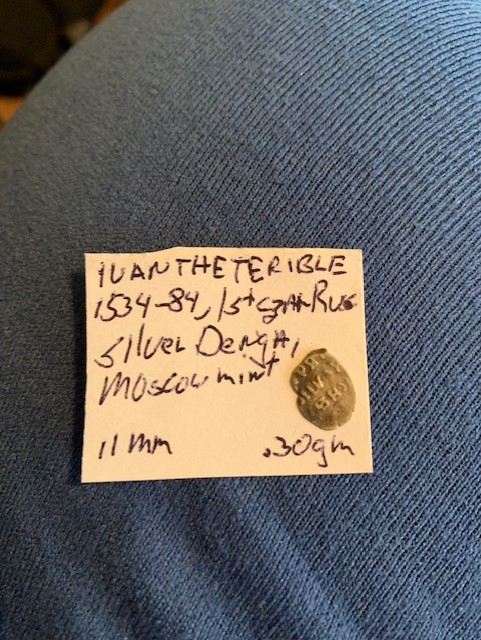 IVAN THE TERIBLE
1534-84, 1st CZAR RUS
SILVER DENGA,
MOSCOW mint
11 mm .30gm